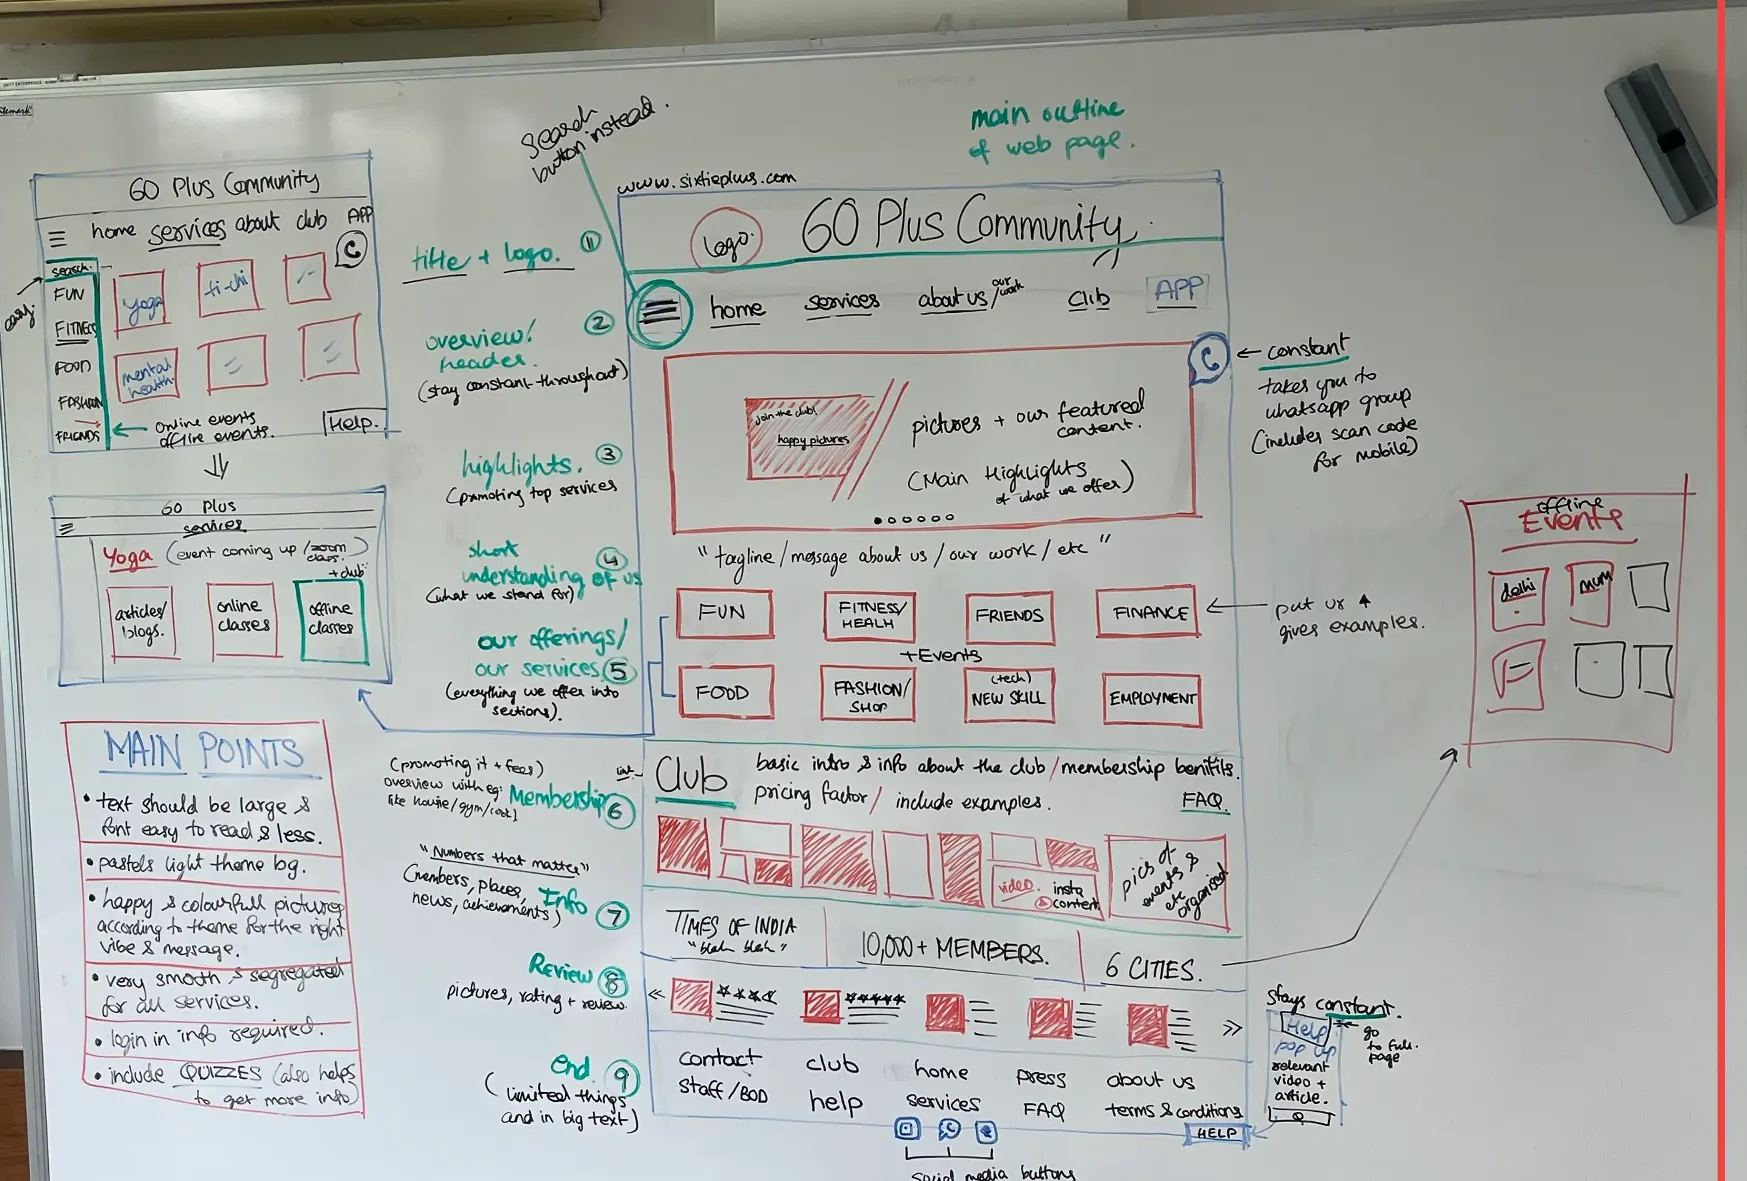 search
button instead.
main outline
of web page.
60 Plus Community
home services about club APP
search.
easy.
FUN
FITNESS
FOOD
FASHION
FRIENDS
yoga
ti-chi
mental
health
online events
offline events.
Help.
60 Plus
services
Yoga (event coming up / zoom
class.
+club
articles/
blogs.
online
classes
offline
classes
MAIN POINTS
• text should be large &
font easy to read & less.
• pastels light theme bg.
• happy & colourfull pictures
according to theme for the right
vibe & message.
• very smooth & segregated
for all services.
• login in info required.
• include QUIZZES (also helps
to get more info)
title + logo. 1
overview/ 2
header.
(stay constant throughout)
highlights. 3
(promoting top services
short 4
understanding of us
(what we stand for)
our offerings/
our services 5
(everything we offer into
sections).
(promoting it + fees)
overview with eg:
Membership 6
"Numbers that matter"
(members, places,
news, achievements)
Info 7
Review 8
pictures, rating + review.
end. 9
(limited things
and in big text)
www.sixtieplus.com
logo.
60 Plus Community.
home services about us/our work Club APP
Join the club!
happy pictures
pictures + our featured
content.
(Main Highlights
of what we offer)
"tagline / message about us / our work / etc"
FUN
FITNESS/
HEALH
FRIENDS
FINANCE
+Events
FOOD
FASHION/
SHOP
(tech)
NEW SKILL
EMPLOYMENT
Club
basic intro & info about the club / membership benifits.
pricing factor / include examples.
FAQ.
video.
insta
content
pics of
events &
etc
organised
TIMES OF INDIA
"blah blah"
10,000+ MEMBERS.
6 CITIES.
contact club home press about us
staff/BOD help services FAQ terms & conditions
HELP
social media buttons
constant
takes you to
whatsapp group
(includes scan code
for mobile)
put ur
gives examples.
offline
Events
delhi
mum
stays constant.
Help
pop up
relevant
video +
article.
go
to full
page